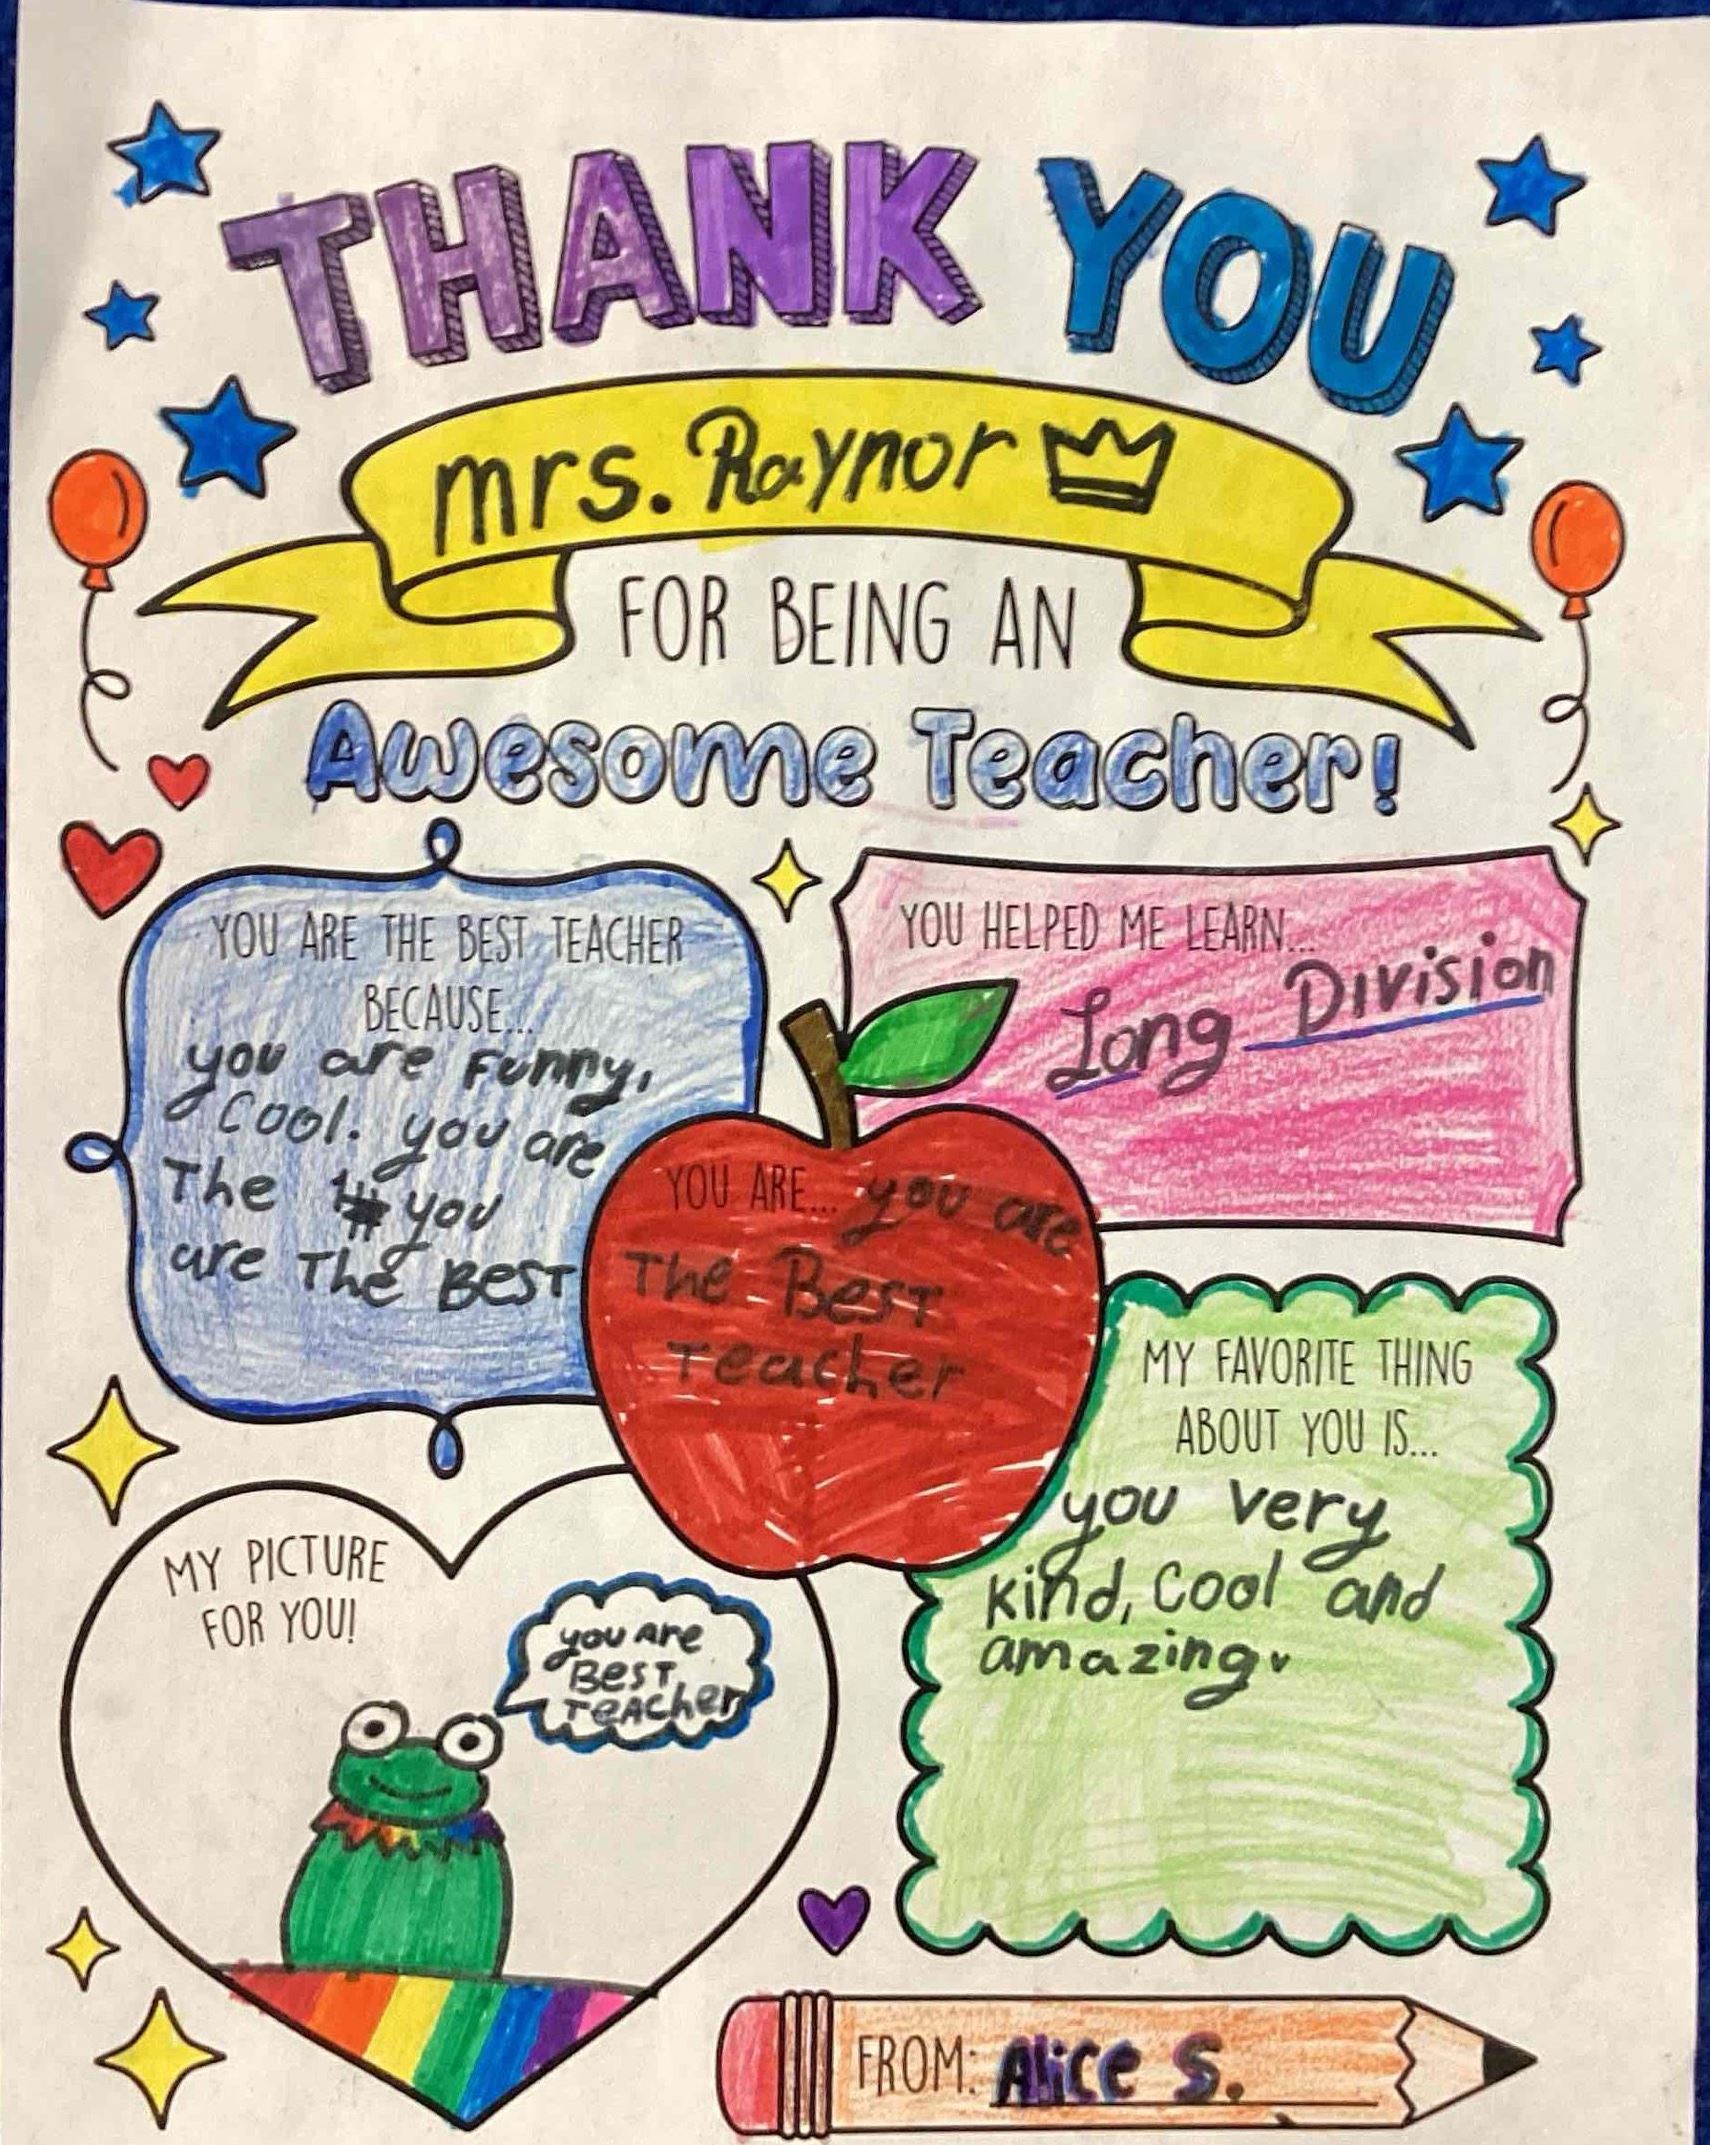 THANK YOU
mrs. Raynor
FOR BEING AN
Awesome Teacher!
YOU ARE THE BEST TEACHER
BECAUSE...
you are Funny,
Cool. you are
The you
are The BEST
YOU HELPED ME LEARN...
Long Division
YOU ARE... you are
The Best
Teacher
MY FAVORITE THING
ABOUT YOU IS...
you very
kind, Cool and
amazing.
MY PICTURE
FOR YOU!
you Are
BEST
TeAcher
FROM: Alice S.